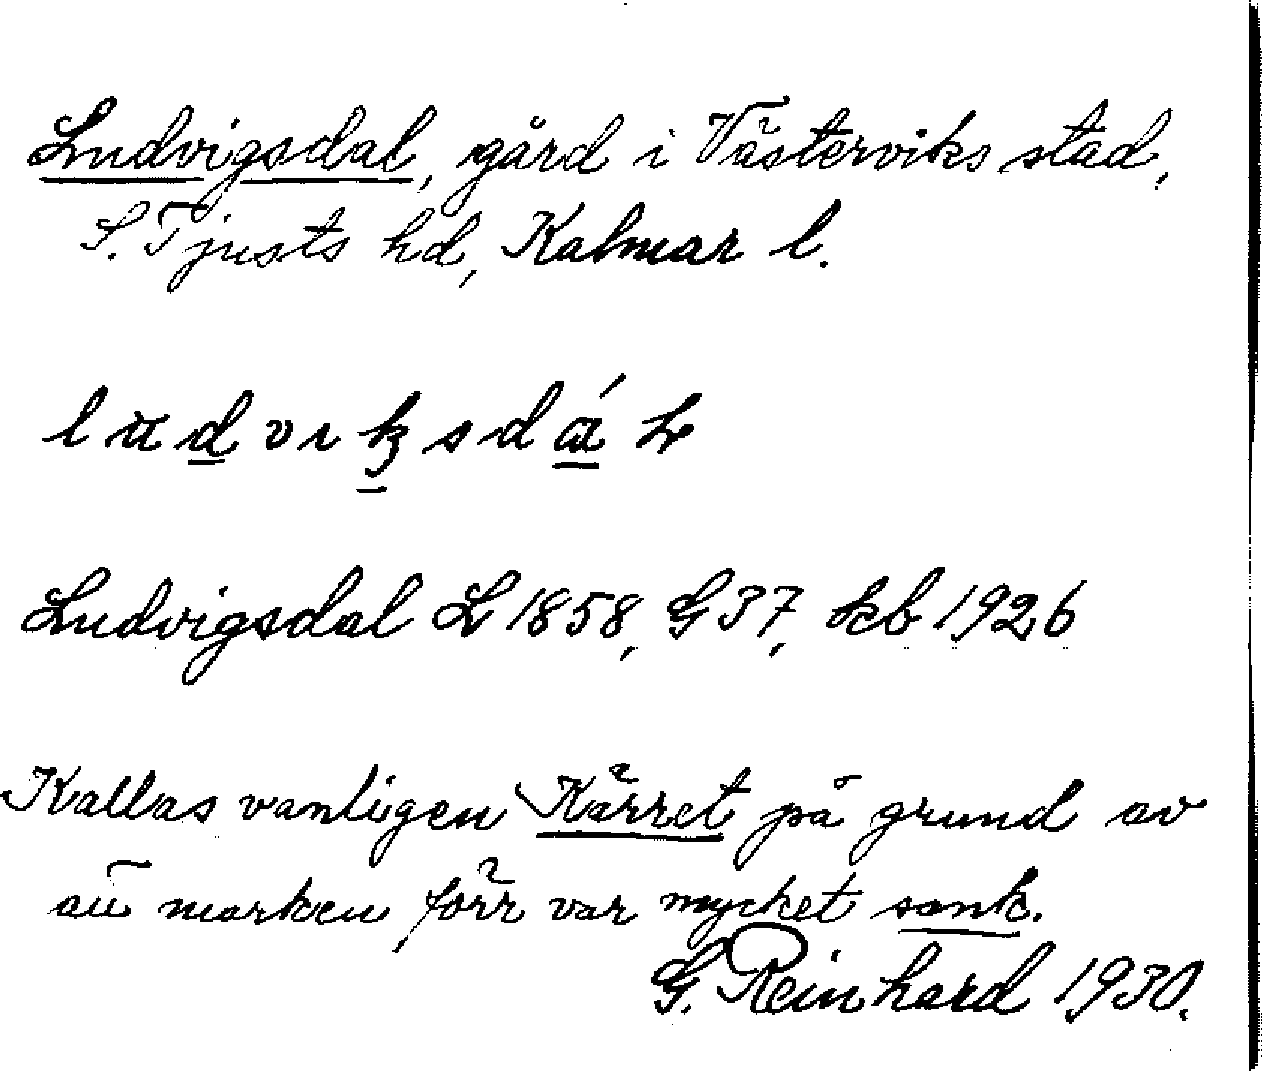 Ludvigsdal, gård i Västerviks stad,
S. Tjusts hd, Kalmar l.
Ludvigsdal L 1858, G 37, kb 1926
Kallas vanligen Kärret på grund av
att marken förr var mycket sank.
G. Reinhard 1930.